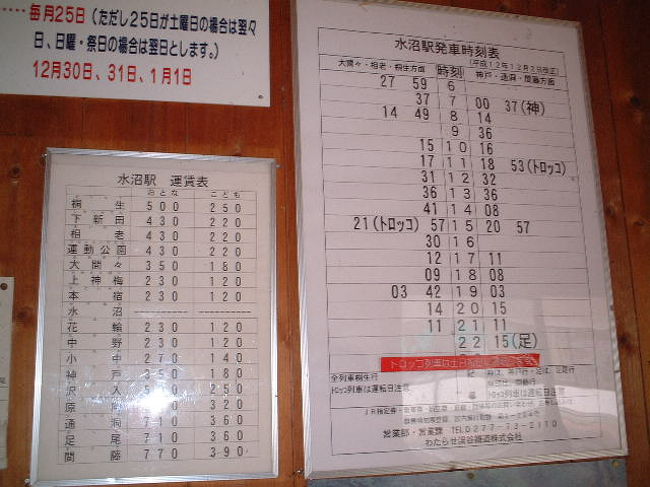 ……毎月25日(ただし25日が土曜日の場合は翌々
日、日曜・祭日の場合は翌日とします。)
12月30日、31日、1月1日
水沼駅 運賃表
おとな こども
桐生 500 250
下新田 430 220
相老 430 220
運動公園 430 220
大間々 350 180
上神梅 230 120
本宿 230 120
水沼
花輪 230 120
中野 230 120
小中 270 140
神戸 350 180
沢入 250
原 320
通洞 710 360
足尾 710 360
間藤 770 390
水沼駅発車時刻表
(平成12年12月2日改正)
大間々・相老・桐生方面 時刻 神戸・通洞・間藤方面
27 59 6
37 7 00 37(神)
14 49 8 14
9 36
15 10 16
17 11 18 53(トロッコ)
31 12 32
36 13 36
41 14 08
21(トロッコ) 57 15 20 57
30 16
12 17 11
09 18 08
03 42 19 03
14 20 15
11 21 11
22 15(足)
トロッコ列車は土日
全列車桐生行
トロッコ列車は運転日注意
トロッコ列車は運転日注意
営業部・営業課 TEL 0277-73-2110
わたらせ渓谷鐵道株式会社